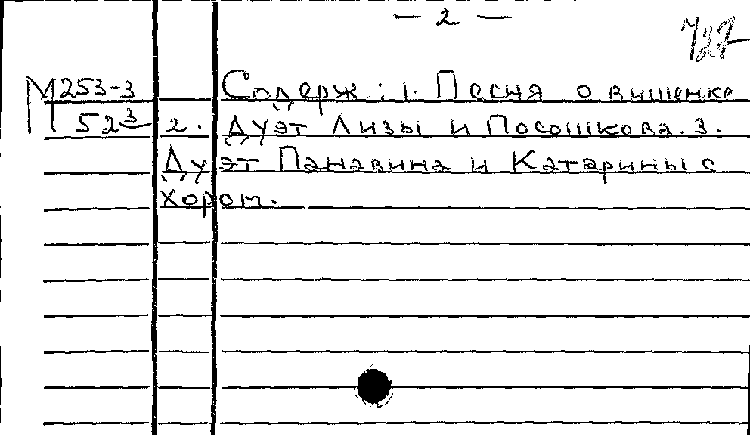 — 2 —
М 253-3 Содерж: 1. Песня о вишенке
52 3 2. Дуэт Лизы и Посошкова. 3.
Дуэт Панавина и Катарины с
хором.